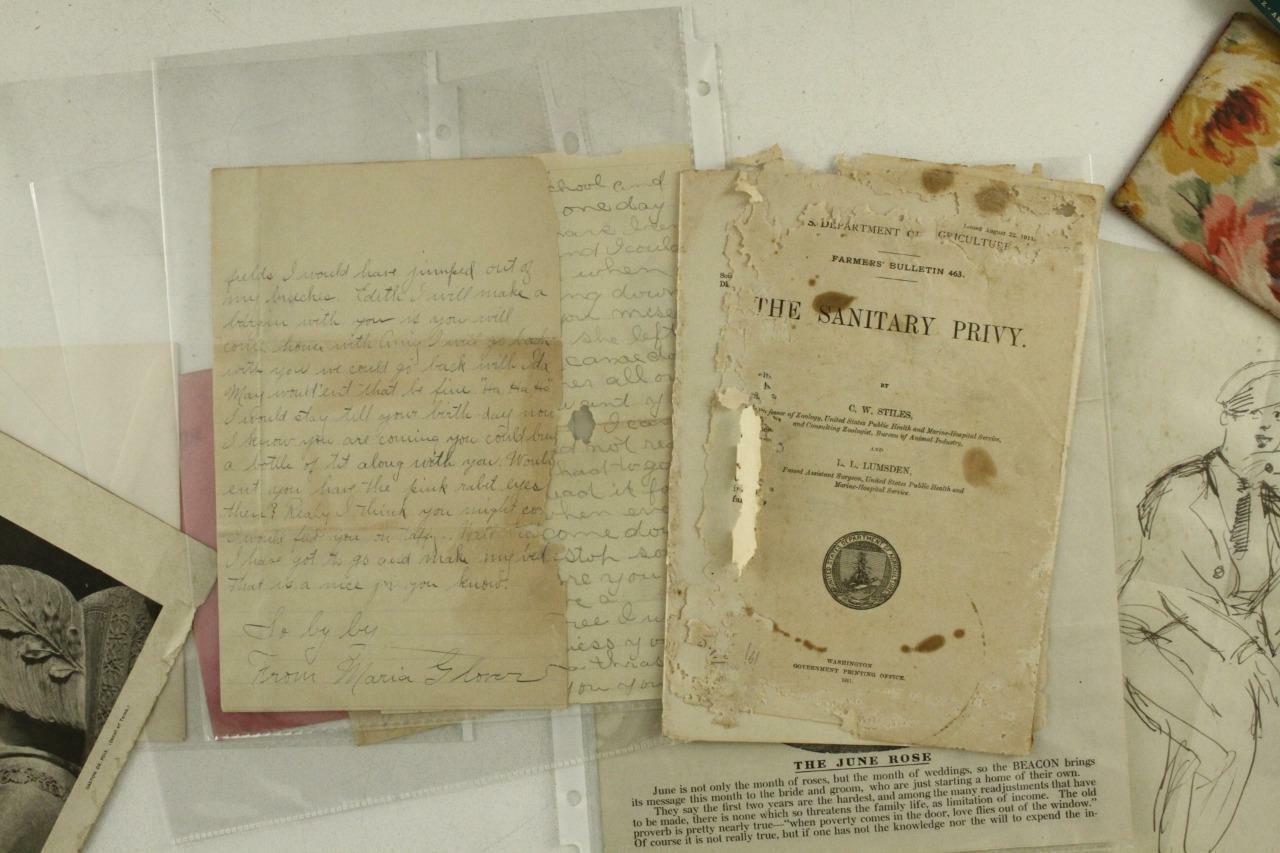 fields I would have jumped out of
my breches. Edith I will make a
bargin with you if you will
come home with I will go back
with you we could go back with Ida
May would'ent that be fine "Ha Ha Ha"
I would stay till your birth day now
I know you are coming you could buy
a bottle of it along with you. Would
ent you have the pink rabit eyes
then? I think you might
I would you on
I have got to go and make my bed
that is a nice you know.
So by by
From Maria Glover
chool and
one day
nd I could
when
ng down
she left
came do
er all o
and y
not re
had to go
ad it fo
when eve
come do
stop so
re you
re a
ree I w
ess yo
a threa
you you
Issued August 22, 1911.
S. DEPARTMENT OF AGRICULTURE
FARMERS' BULLETIN 463.
THE SANITARY PRIVY.
BY
C. W. STILES,
fessor of Zoology, United States Public Health and Marine-Hospital Service,
and Consulting Zoologist, Bureau of Animal Industry,
AND
L. L. LUMSDEN,
Passed Assistant Surgeon, United States Public Health and
Marine-Hospital Service.
161
WASHINGTON
GOVERNMENT PRINTING OFFICE.
1911.
THE JUNE ROSE
June is not only the month of roses, but the month of weddings, so the BEACON brings
its message this month to the bride and groom, who are just starting a home of their own.
They say the first two years are the hardest, and among the many readjustments that have
to be made, there is none which so threatens the family life, as limitation of income. The old
proverb is pretty nearly true—"when poverty comes in the door, love flies out of the window."
Of course it is not really true, but if one has not the knowledge nor the will to expend the in-